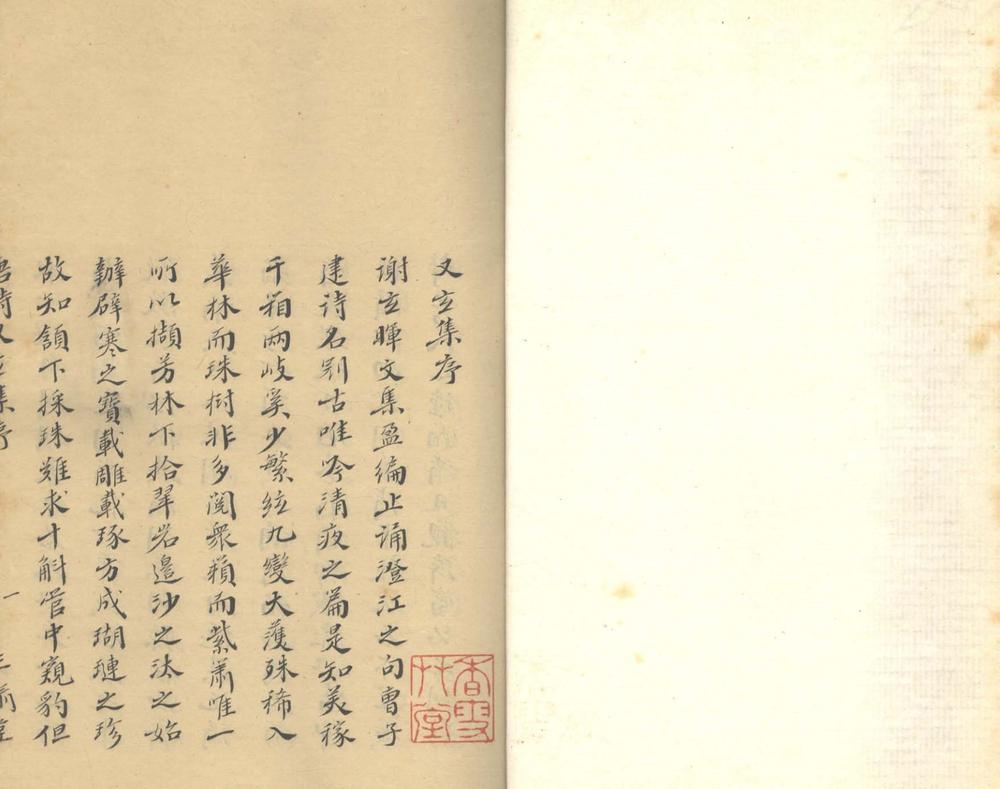 又玄集序
謝玄暉文集盈編止誦澄江之句曹子
建詩名別古唯吟清夜之篇是知美稼
千箱兩歧奚少繁絃九變大濩殊稀入
華林而珠樹非多閱衆籟而紫簫唯一
所以擷芳林下拾翠岩邊沙之汰之始
辧辟寒之寶載雕載琢方成瑚璉之珍
故知頷下採珠難求十斛管中窺豹但
唐詩又玄集序 一
香雪草堂